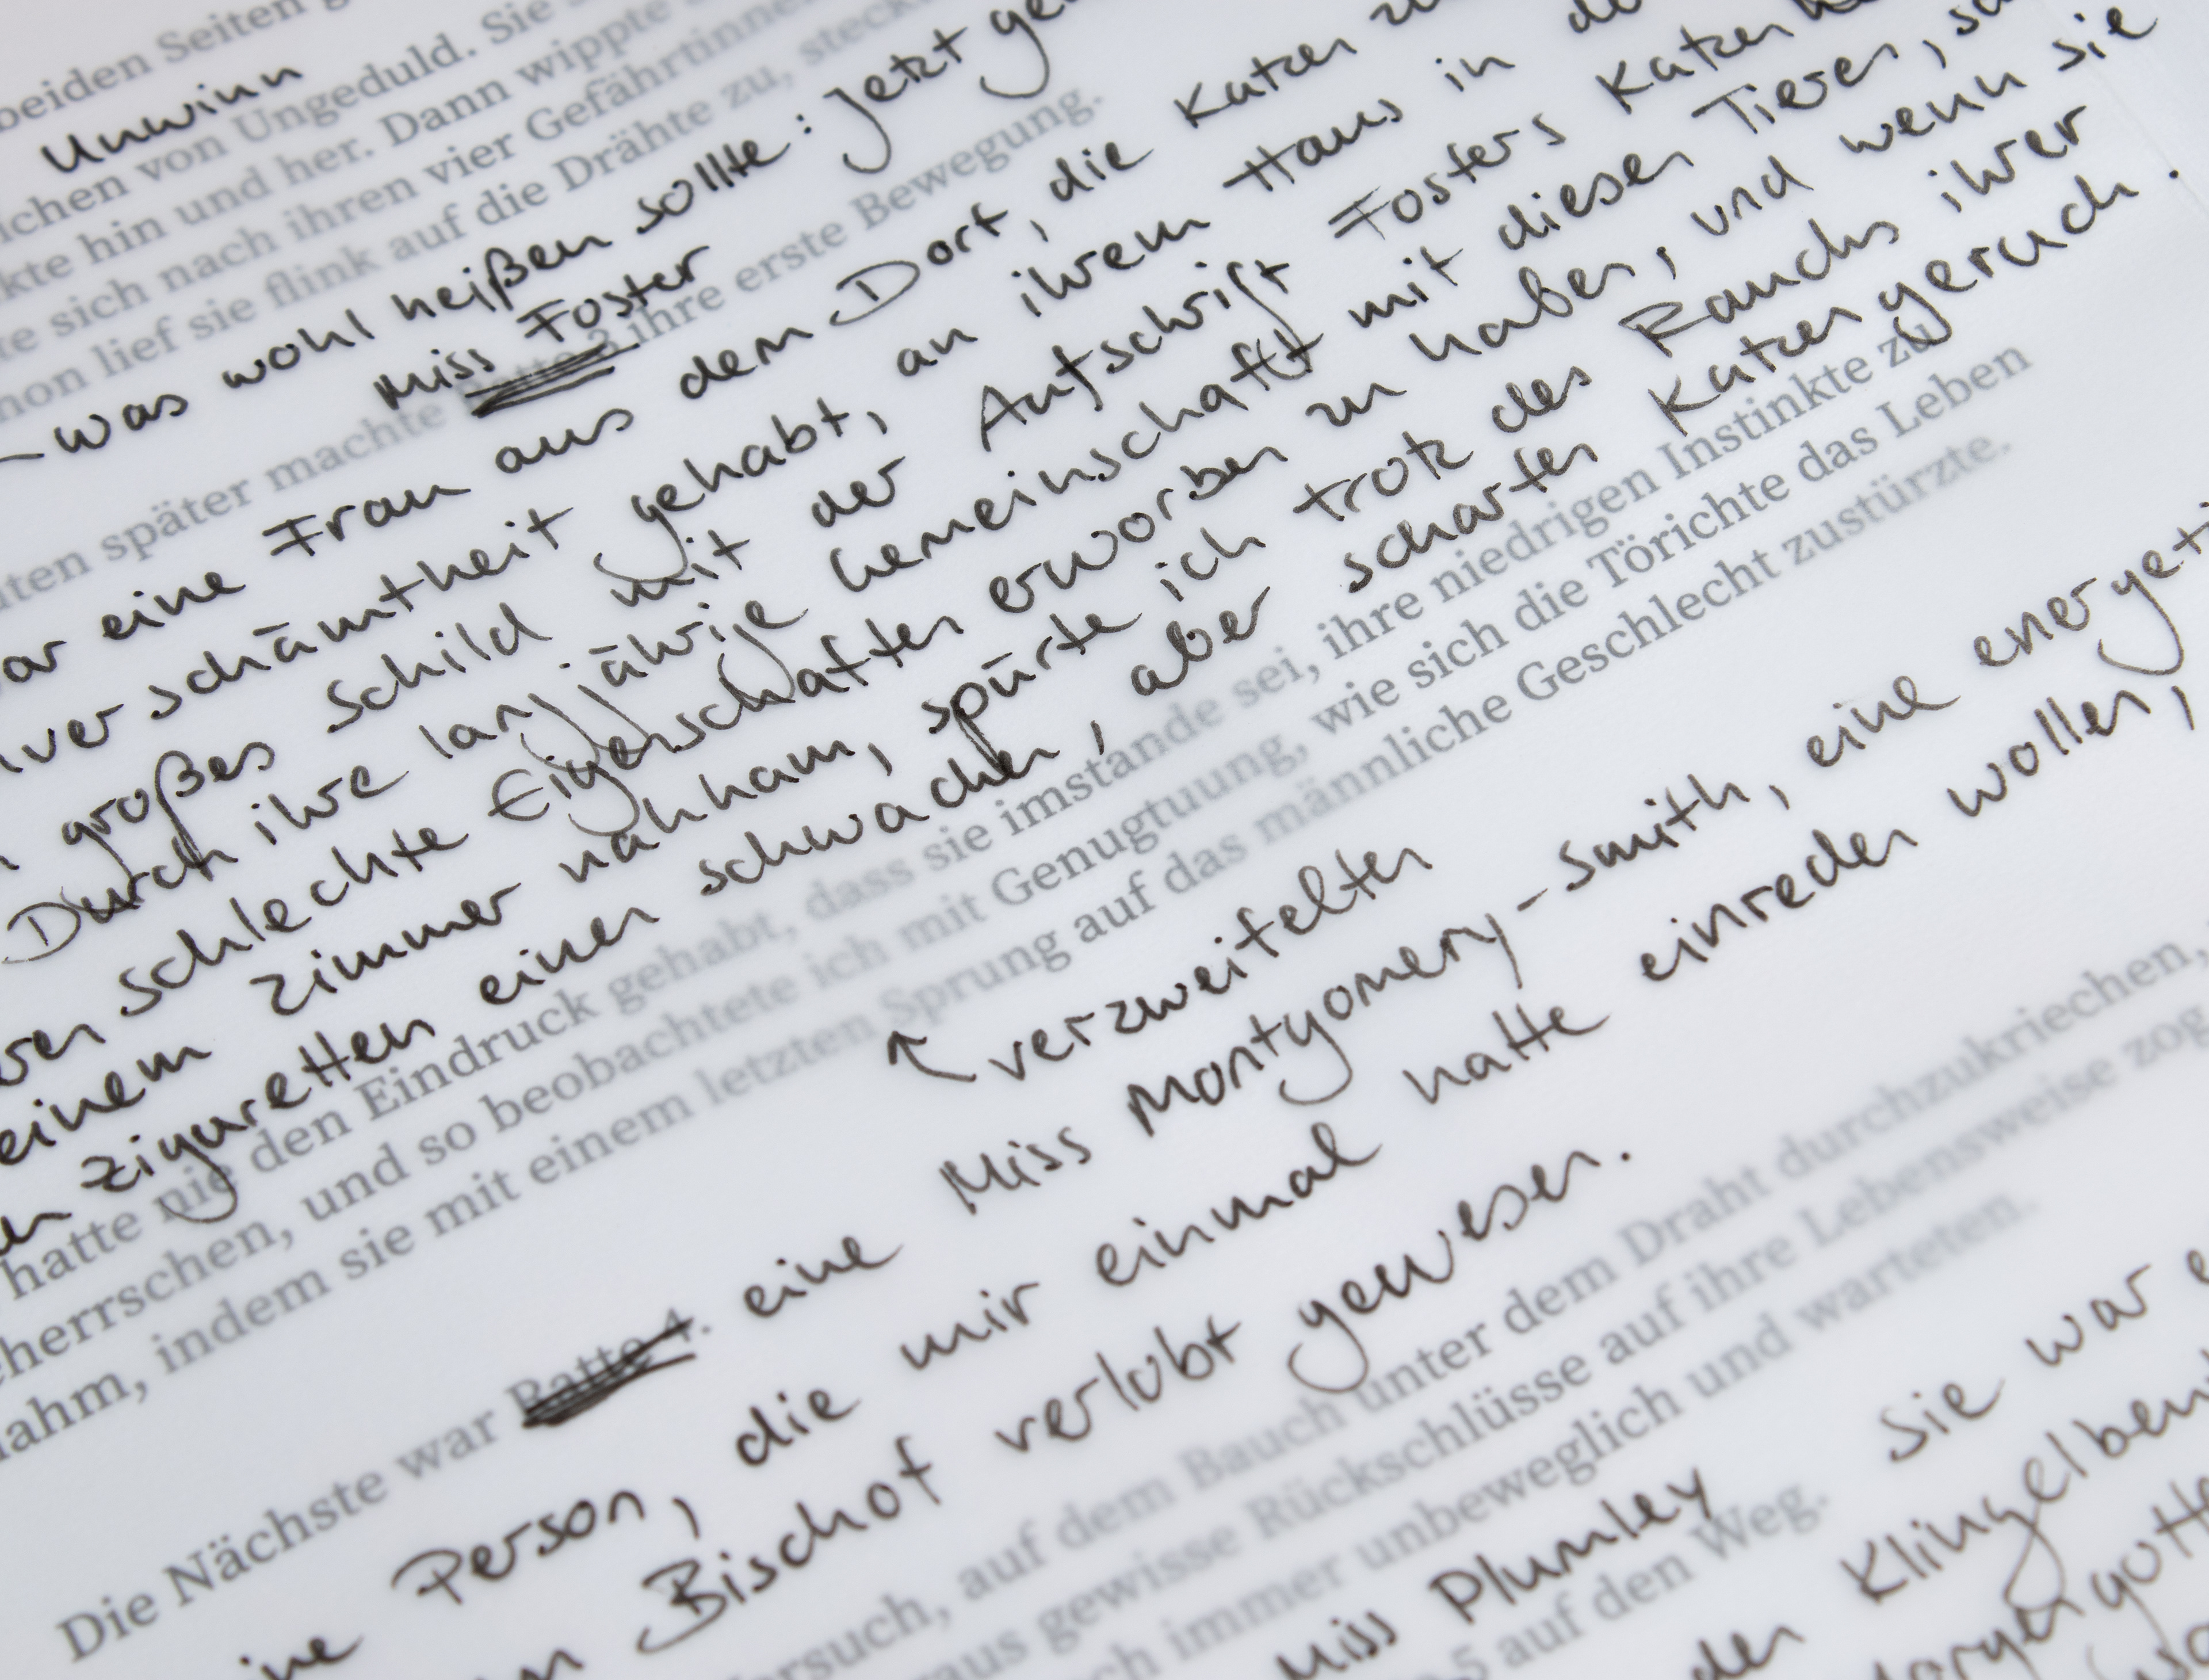 beiden Seiten
Unwinn
ichen von Ungeduld. Sie
kte hin und her. Dann wippte
te sich nach ihren vier Gefährtinnen
hon lief sie flink auf die Drähte zu,
– was wohl heißen sollte: Jetzt
Miss Foster
ten später machte Ratte 3 ihre erste Bewegung.
ar eine Frau aus dem Dorf, die Katzen
verschämtheit gehabt, an ihrem Haus in
großes Schild mit der Aufschrift Fosters
Durch ihre langjährige Gemeinschaft mit diesen Tieren,
ren schlechte Eigenschaften erworben zu haben, und wenn sie
einem Zimmer nahkam, spürte ich trotz des Rauchs ihrer
en Zigaretten einen schwachen, aber scharfen Katzengeruch.
hatte nie den Eindruck gehabt, dass sie imstande sei, ihre niedrigen Instinkte zu
eherrschen, und so beobachtete ich mit Genugtuung, wie sich die Törichte das Leben
nahm, indem sie mit einem letzten Sprung auf das männliche Geschlecht zustürzte.
verzweifelten
Die Nächste war Ratte 4. eine Miss Montgomery-Smith, eine
ine Person, die mir einmal hatte einreden wollen,
Bischof verlobt gewesen.
ersuch, auf dem Bauch unter dem Draht durchzukriechen,
aus gewisse Rückschlüsse auf ihre Lebensweise zog
ch immer unbeweglich und warteten.
Miss Plumley Sie war
5 auf den Weg.
der